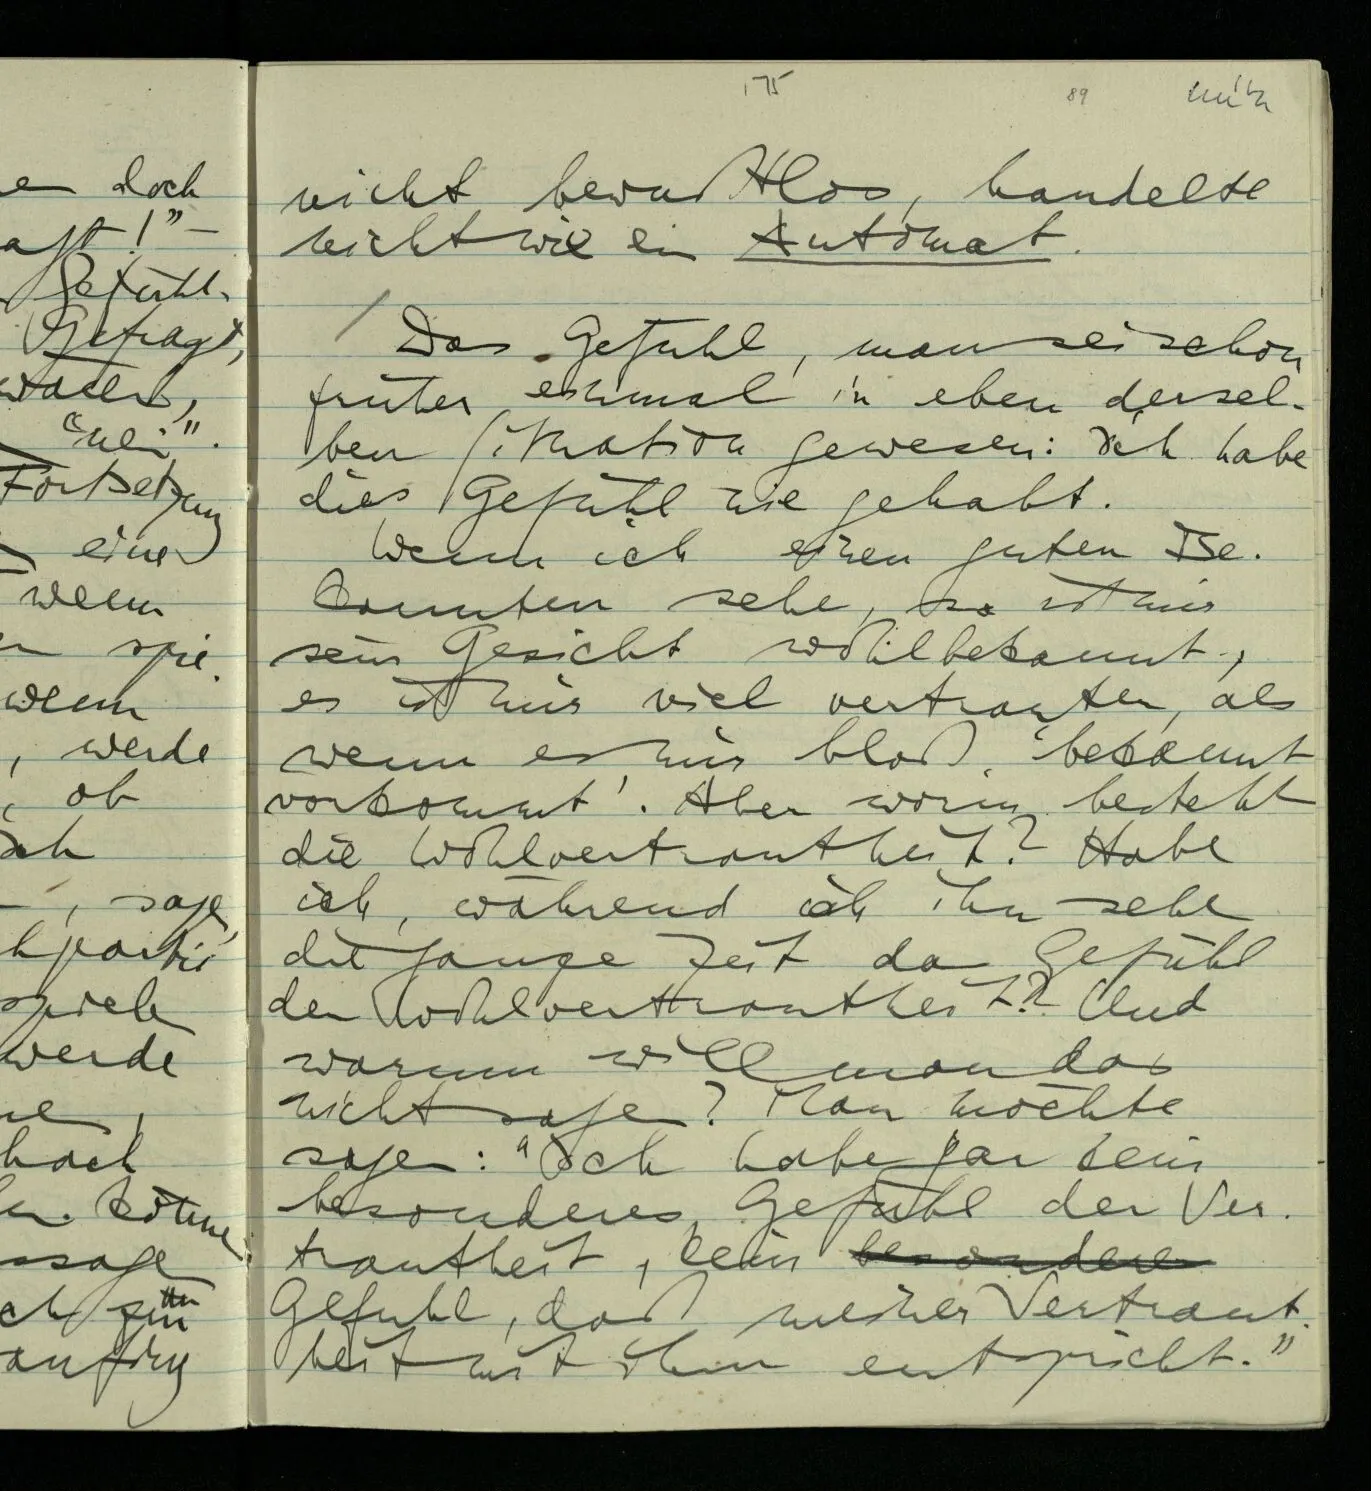 175
89
e doch
aft!" –
Gefühl-
Gefragt,
"nein".
Fortsetzung
einer
wenn
n spie-
wenn
, werde
, ob
ich
– , sage
hpartie
spiele
werde
ne,
noch
en. könne
ssage
anfing
nicht bewußtlos, handelte
nicht wie ein Automat.
/ Das Gefühl, man sei schon
früher einmal in eben dersel-
ben Situation gewesen: Ich habe
dies Gefühl nie gehabt.
Wenn ich einen guten Be-
kannten sehe, so ist mir
sein Gesicht wohlbekannt;
es ist mir viel vertrauter, als
wenn es mir bloß 'bekannt
vorkommt'. Aber worin besteht
die Wohlvertrautheit? Habe
ich, während ich ihn sehe
die ganze Zeit das Gefühl
der Wohlvertrautheit? Und
warum will man das
nicht sagen? Man möchte
sagen: "Ich habe gar kein
besonderes Gefühl der Ver-
trautheit, kein besonderes
Gefühl, das meiner Vertraut-
heit mit ihm entspricht."